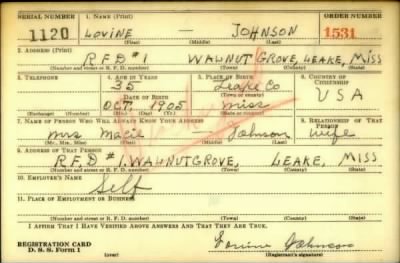 SERIAL NUMBER 1. NAME (Print) ORDER NUMBER
1120 LOVINE — JOHNSON 1531
(First) (Middle) (Last)
2. ADDRESS (Print)
R F D #1 WALNUT GROVE, LEAKE, MISS
(Number and street or R. F. D. number) (Town) (County) (State)
3. TELEPHONE 4. AGE IN YEARS 5. PLACE OF BIRTH 6. COUNTRY OF CITIZENSHIP
35 Leake Co
DATE OF BIRTH (Town or county) U S A
OCT. 1905 Miss
(Exchange) (Number) (Mo.) (Day) (Yr.) (State or country)
7. NAME OF PERSON WHO WILL ALWAYS KNOW YOUR ADDRESS 8. RELATIONSHIP OF THAT PERSON
Mrs Macie — Johnson wife
(Mr., Mrs., Miss) (First) (Middle) (Last)
9. ADDRESS OF THAT PERSON
R.F.D #1. WALNUTGROVE, LEAKE, MISS
(Number and street or R. F. D. number) (Town) (County) (State)
10. EMPLOYER'S NAME
Self
11. PLACE OF EMPLOYMENT OR BUSINESS
(Number and street or R. F. D. number) (Town) (County) (State)
I AFFIRM THAT I HAVE VERIFIED ABOVE ANSWERS AND THAT THEY ARE TRUE.
REGISTRATION CARD
D. S. S. Form 1
Lovine Johnson
(Registrant's signature)